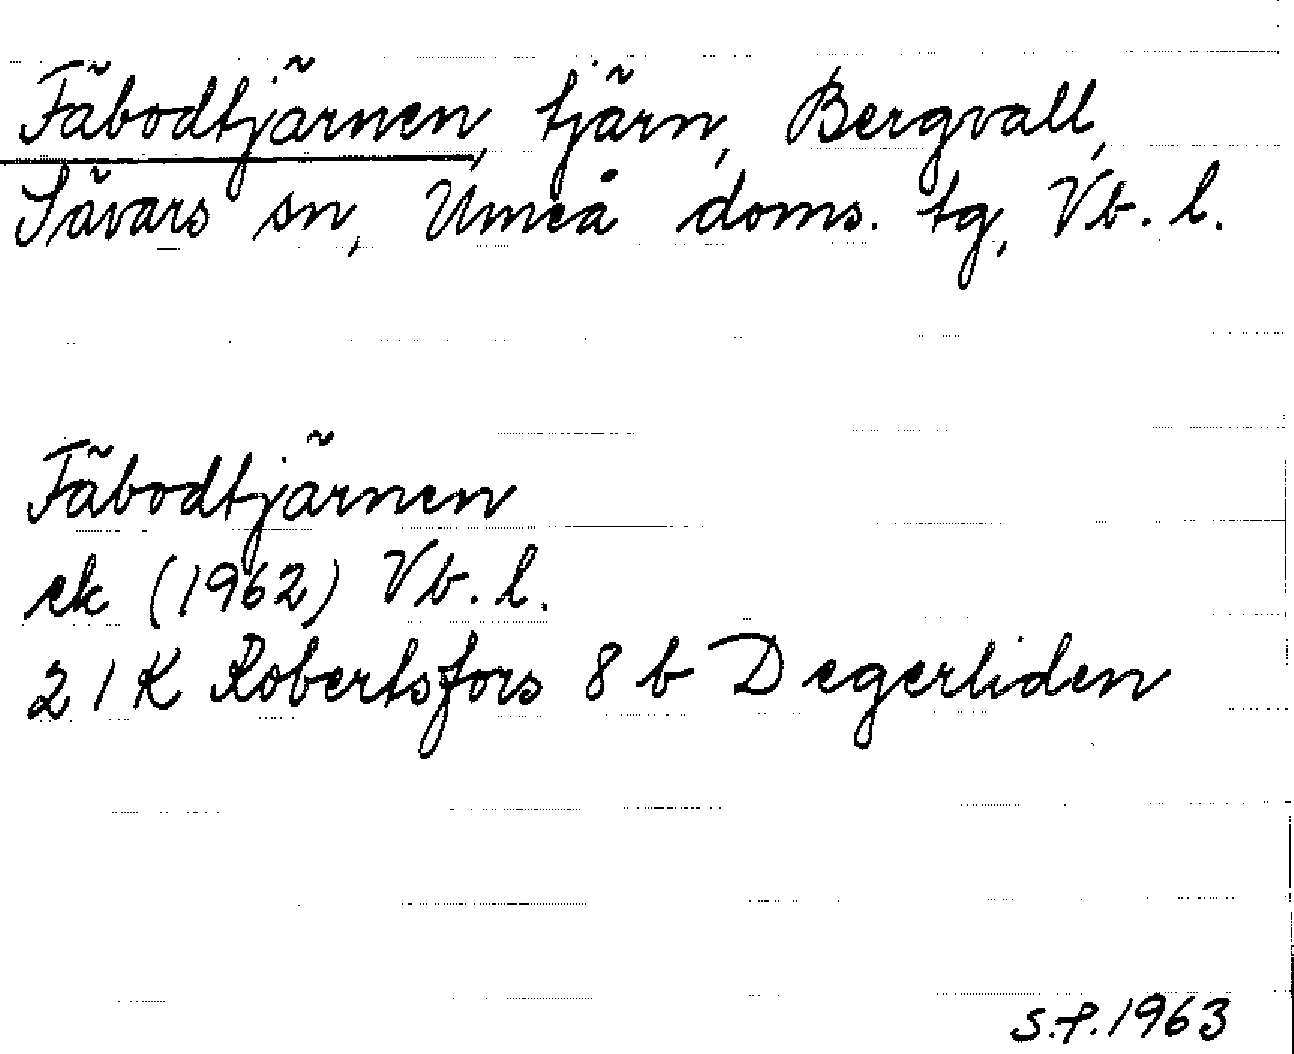 Fäbodtjärnen, tjärn, Bergvall,
Sävars sn, Umeå doms. tg, Vb. l.
Fäbodtjärnen
ek (1962) Vb. l.
21K Robertsfors 8 b Degerliden
S.P. 1963